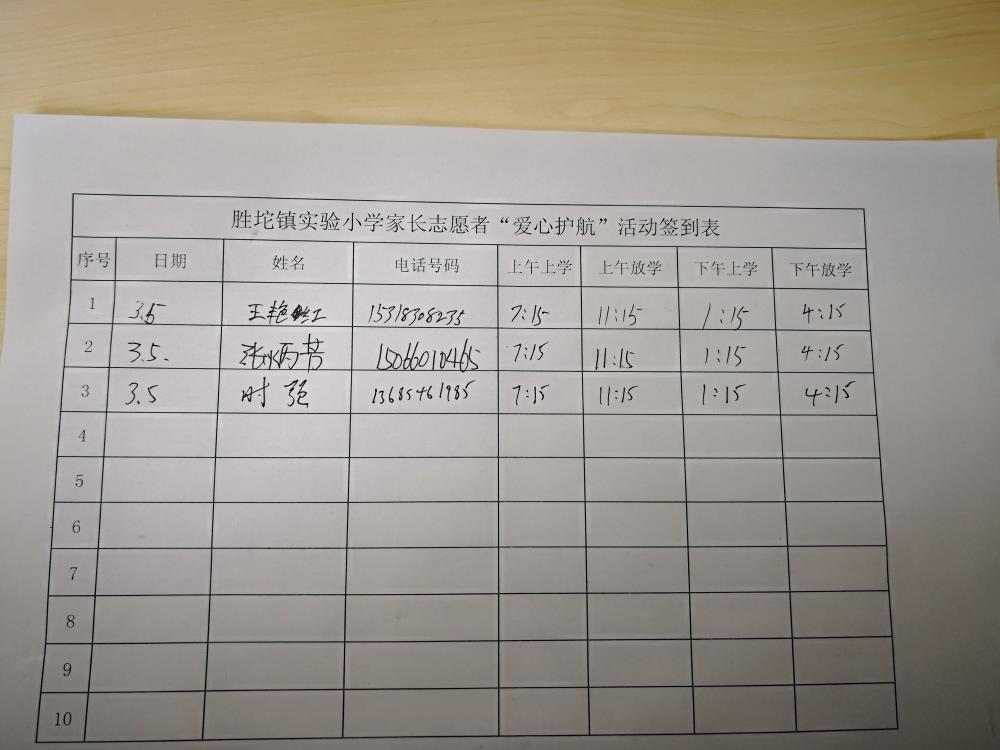 胜坨镇实验小学家长志愿者“爱心护航”活动签到表
序号 日期 姓名 电话号码 上午上学 上午放学 下午上学 下午放学
1 3.5 王艳红 15318308235 7:15 11:15 1:15 4:15
2 3.5. 张丙芳 15066010465 7:15 11:15 1:15 4:15
3 3.5 时强 13685461985 7:15 11:15 1:15 4:15
4
5
6
7
8
9
10